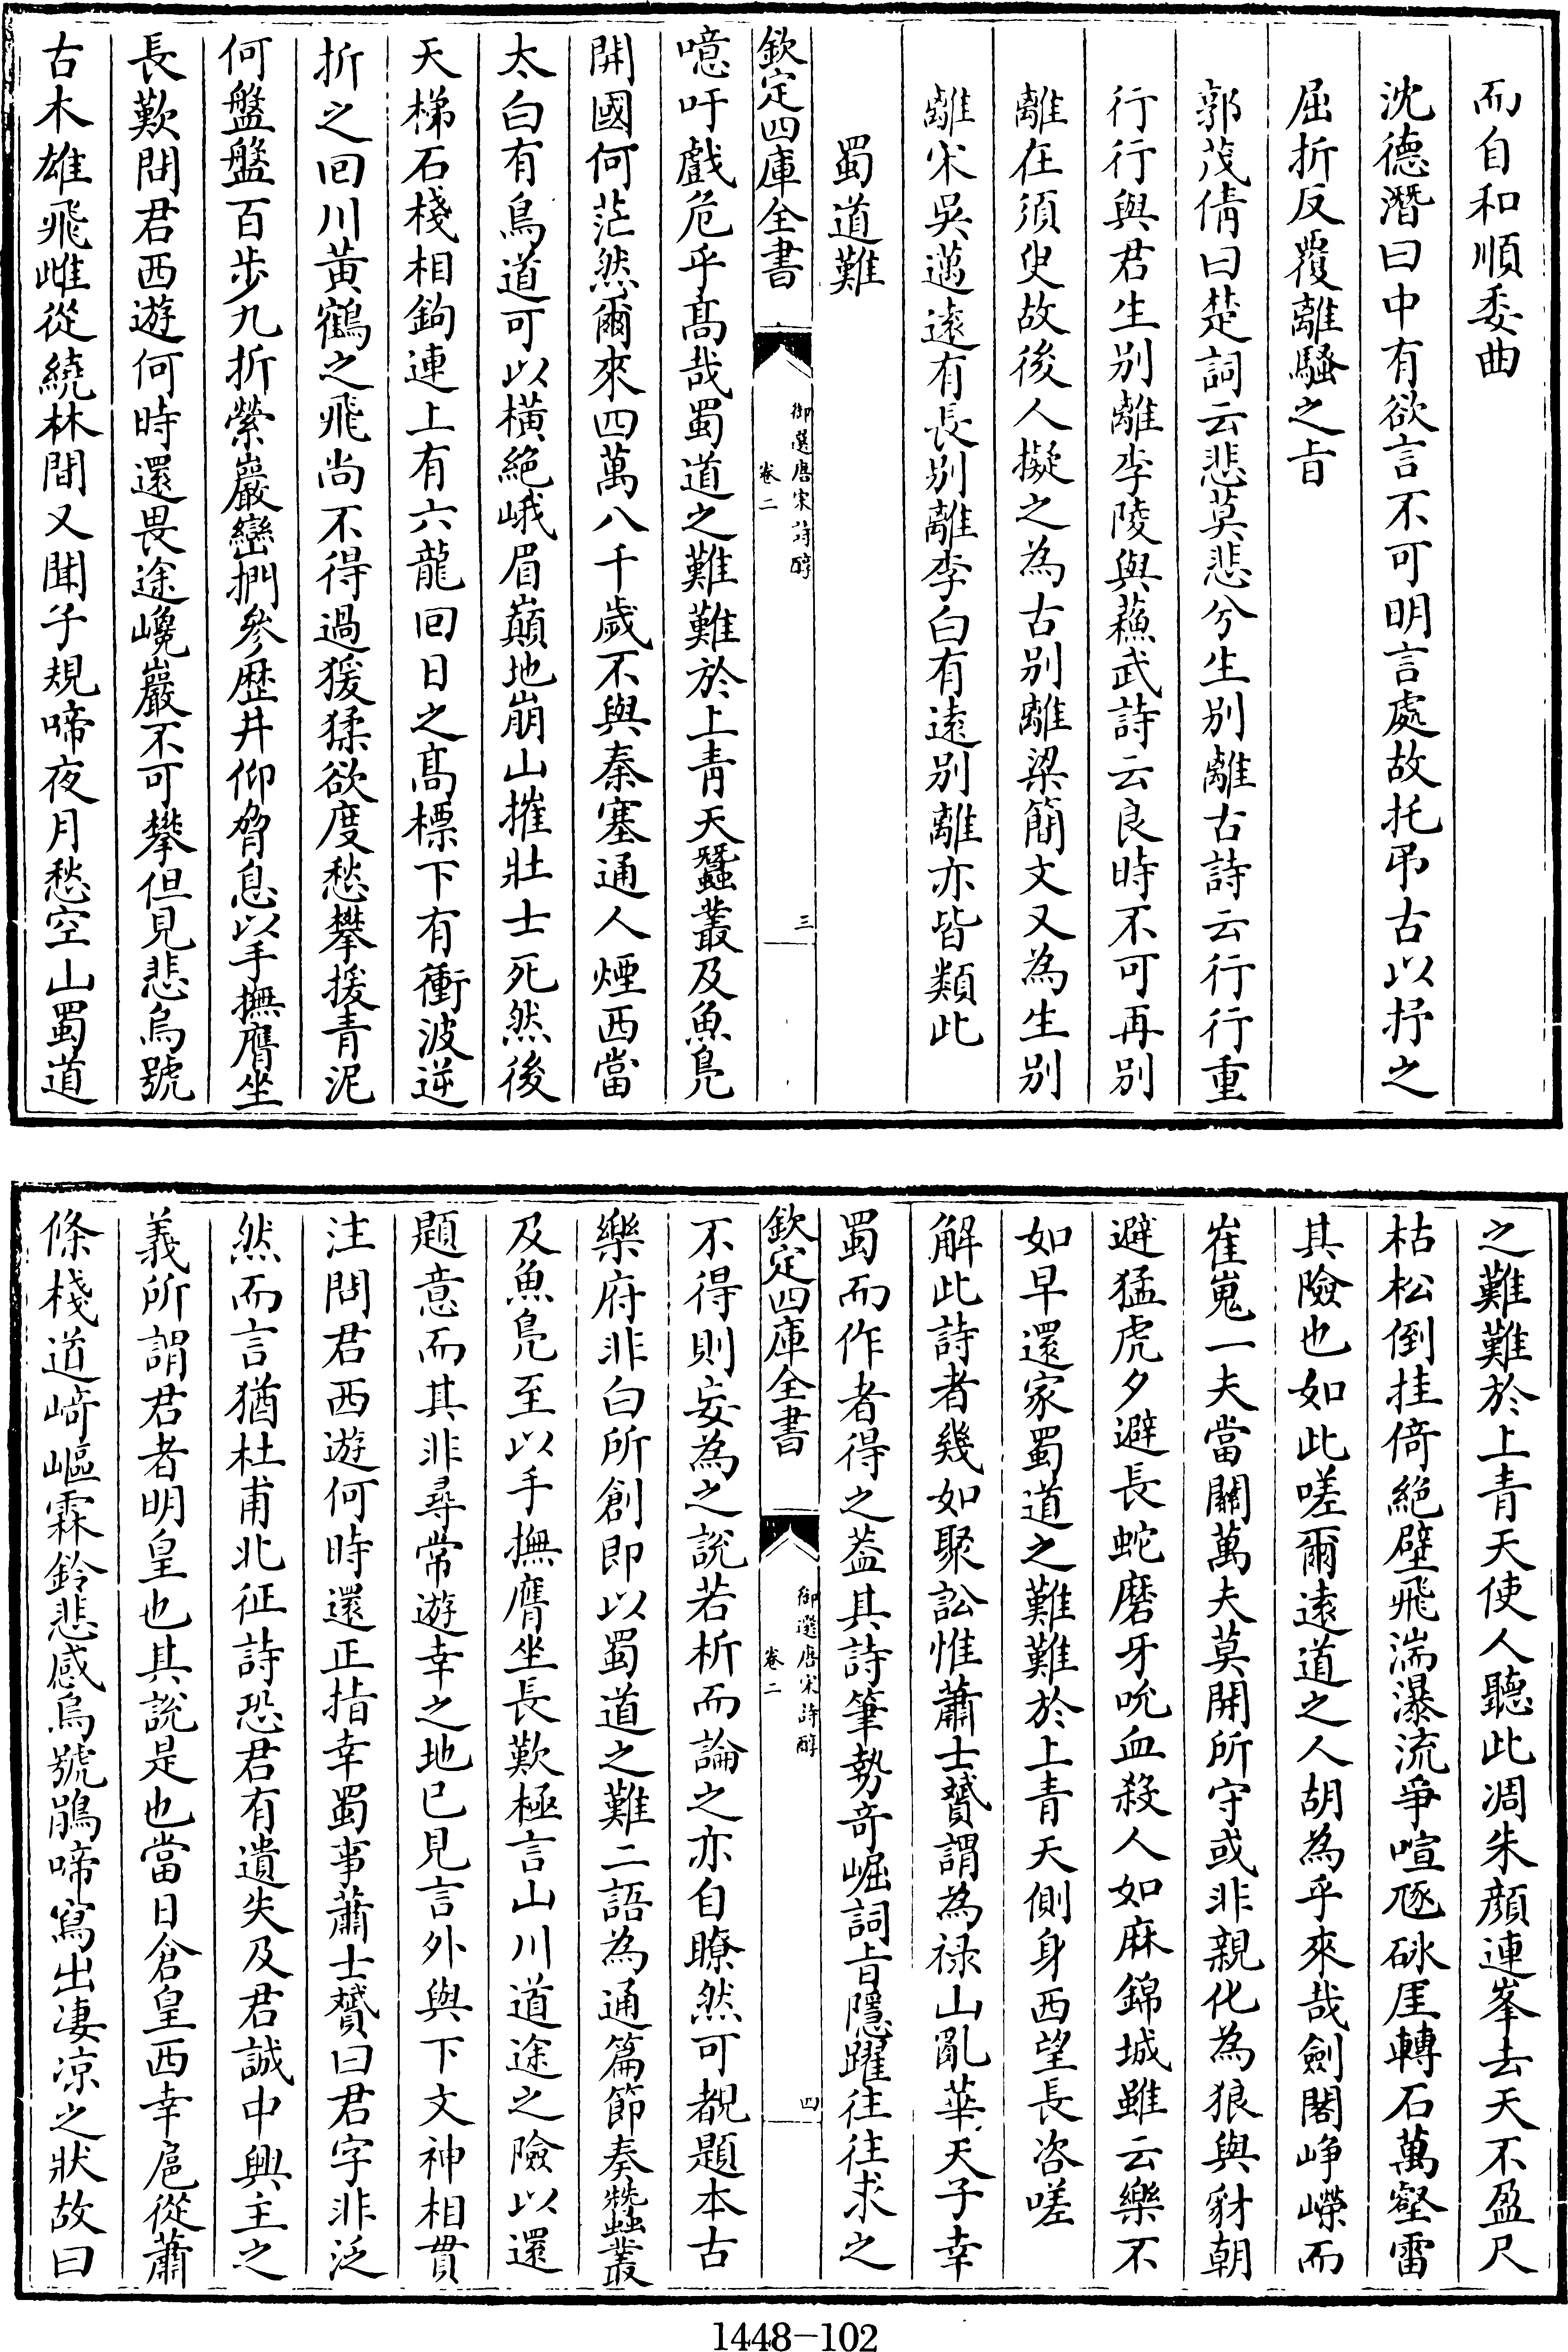 而自和順委曲
沈德潛曰中有欲言不可明言處故托弔古以抒之
屈折反覆離騷之㫖
郭茂倩曰楚詞云悲莫悲兮生别離古詩云行行重
行行與君生别離李陵與蘇武詩云良時不可再别
離在須臾故後人擬之為古别離梁簡文又為生别
離宋吳邁逺有長别離李白有逺别離亦皆類此
蜀道難
欽定四庫全書
御選唐宋詩醇
卷二
三
噫吁戲危乎髙哉蜀道之難難於上青天蠶叢及魚鳬
開國何茫然爾來四萬八千歲不與秦塞通人煙西當
太白有鳥道可以橫絶峨眉巔地崩山摧壯士死然後
天梯石棧相鉤連上有六龍回日之髙標下有衝波逆
折之回川黃鶴之飛尚不得過猨猱欲度愁攀援青泥
何盤盤百步九折縈巖巒捫參歴井仰脅息以手撫膺坐
長歎問君西遊何時還畏途巉巖不可攀但見悲鳥號
古木雄飛雌從繞林間又聞子規啼夜月愁空山蜀道
之難難於上青天使人聽此凋朱顔連峯去天不盈尺
枯松倒挂倚絶壁飛湍瀑流爭喧豗砯厓轉石萬壑雷
其險也如此嗟爾逺道之人胡為乎來哉劍閣峥嶸而
崔嵬一夫當關萬夫莫開所守或非親化為狼與豺朝
避猛虎夕避長蛇磨牙吮血殺人如麻錦城雖云樂不
如早還家蜀道之難難於上青天側身西望長咨嗟
解此詩者幾如聚訟惟蕭士贇謂為禄山亂華天子幸
蜀而作者得之葢其詩筆勢奇崛詞㫖隱躍往往求之
欽定四庫全書
御選唐宋詩醇
卷二
四
不得則妄為之說若析而論之亦自瞭然可覩題本古
樂府非白所創即以蜀道之難二語為通篇節奏蠶叢
及魚鳬至以手撫膺坐長歎極言山川道途之險以還
題意而其非尋常遊幸之地已見言外與下文神相貫
注問君西遊何時還正指幸蜀事蕭士贇曰君字非泛
然而言猶杜甫北征詩恐君有遺失及君誠中興主之
義所謂君者明皇也其說是也當日倉皇西幸扈從蕭
條棧道﨑嶇霖鈴悲感烏號鵑啼寫出凄凉之狀故曰
1448-102